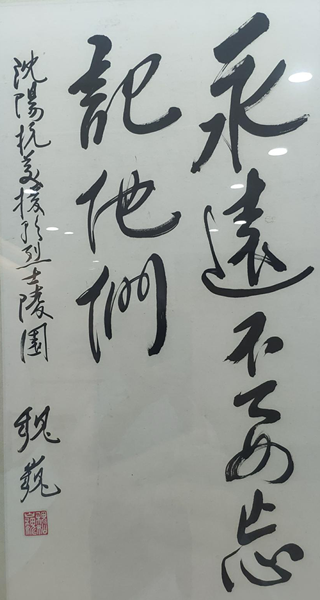 永遠不要忘
記他們
沈陽抗美援朝烈士陵園 魏巍